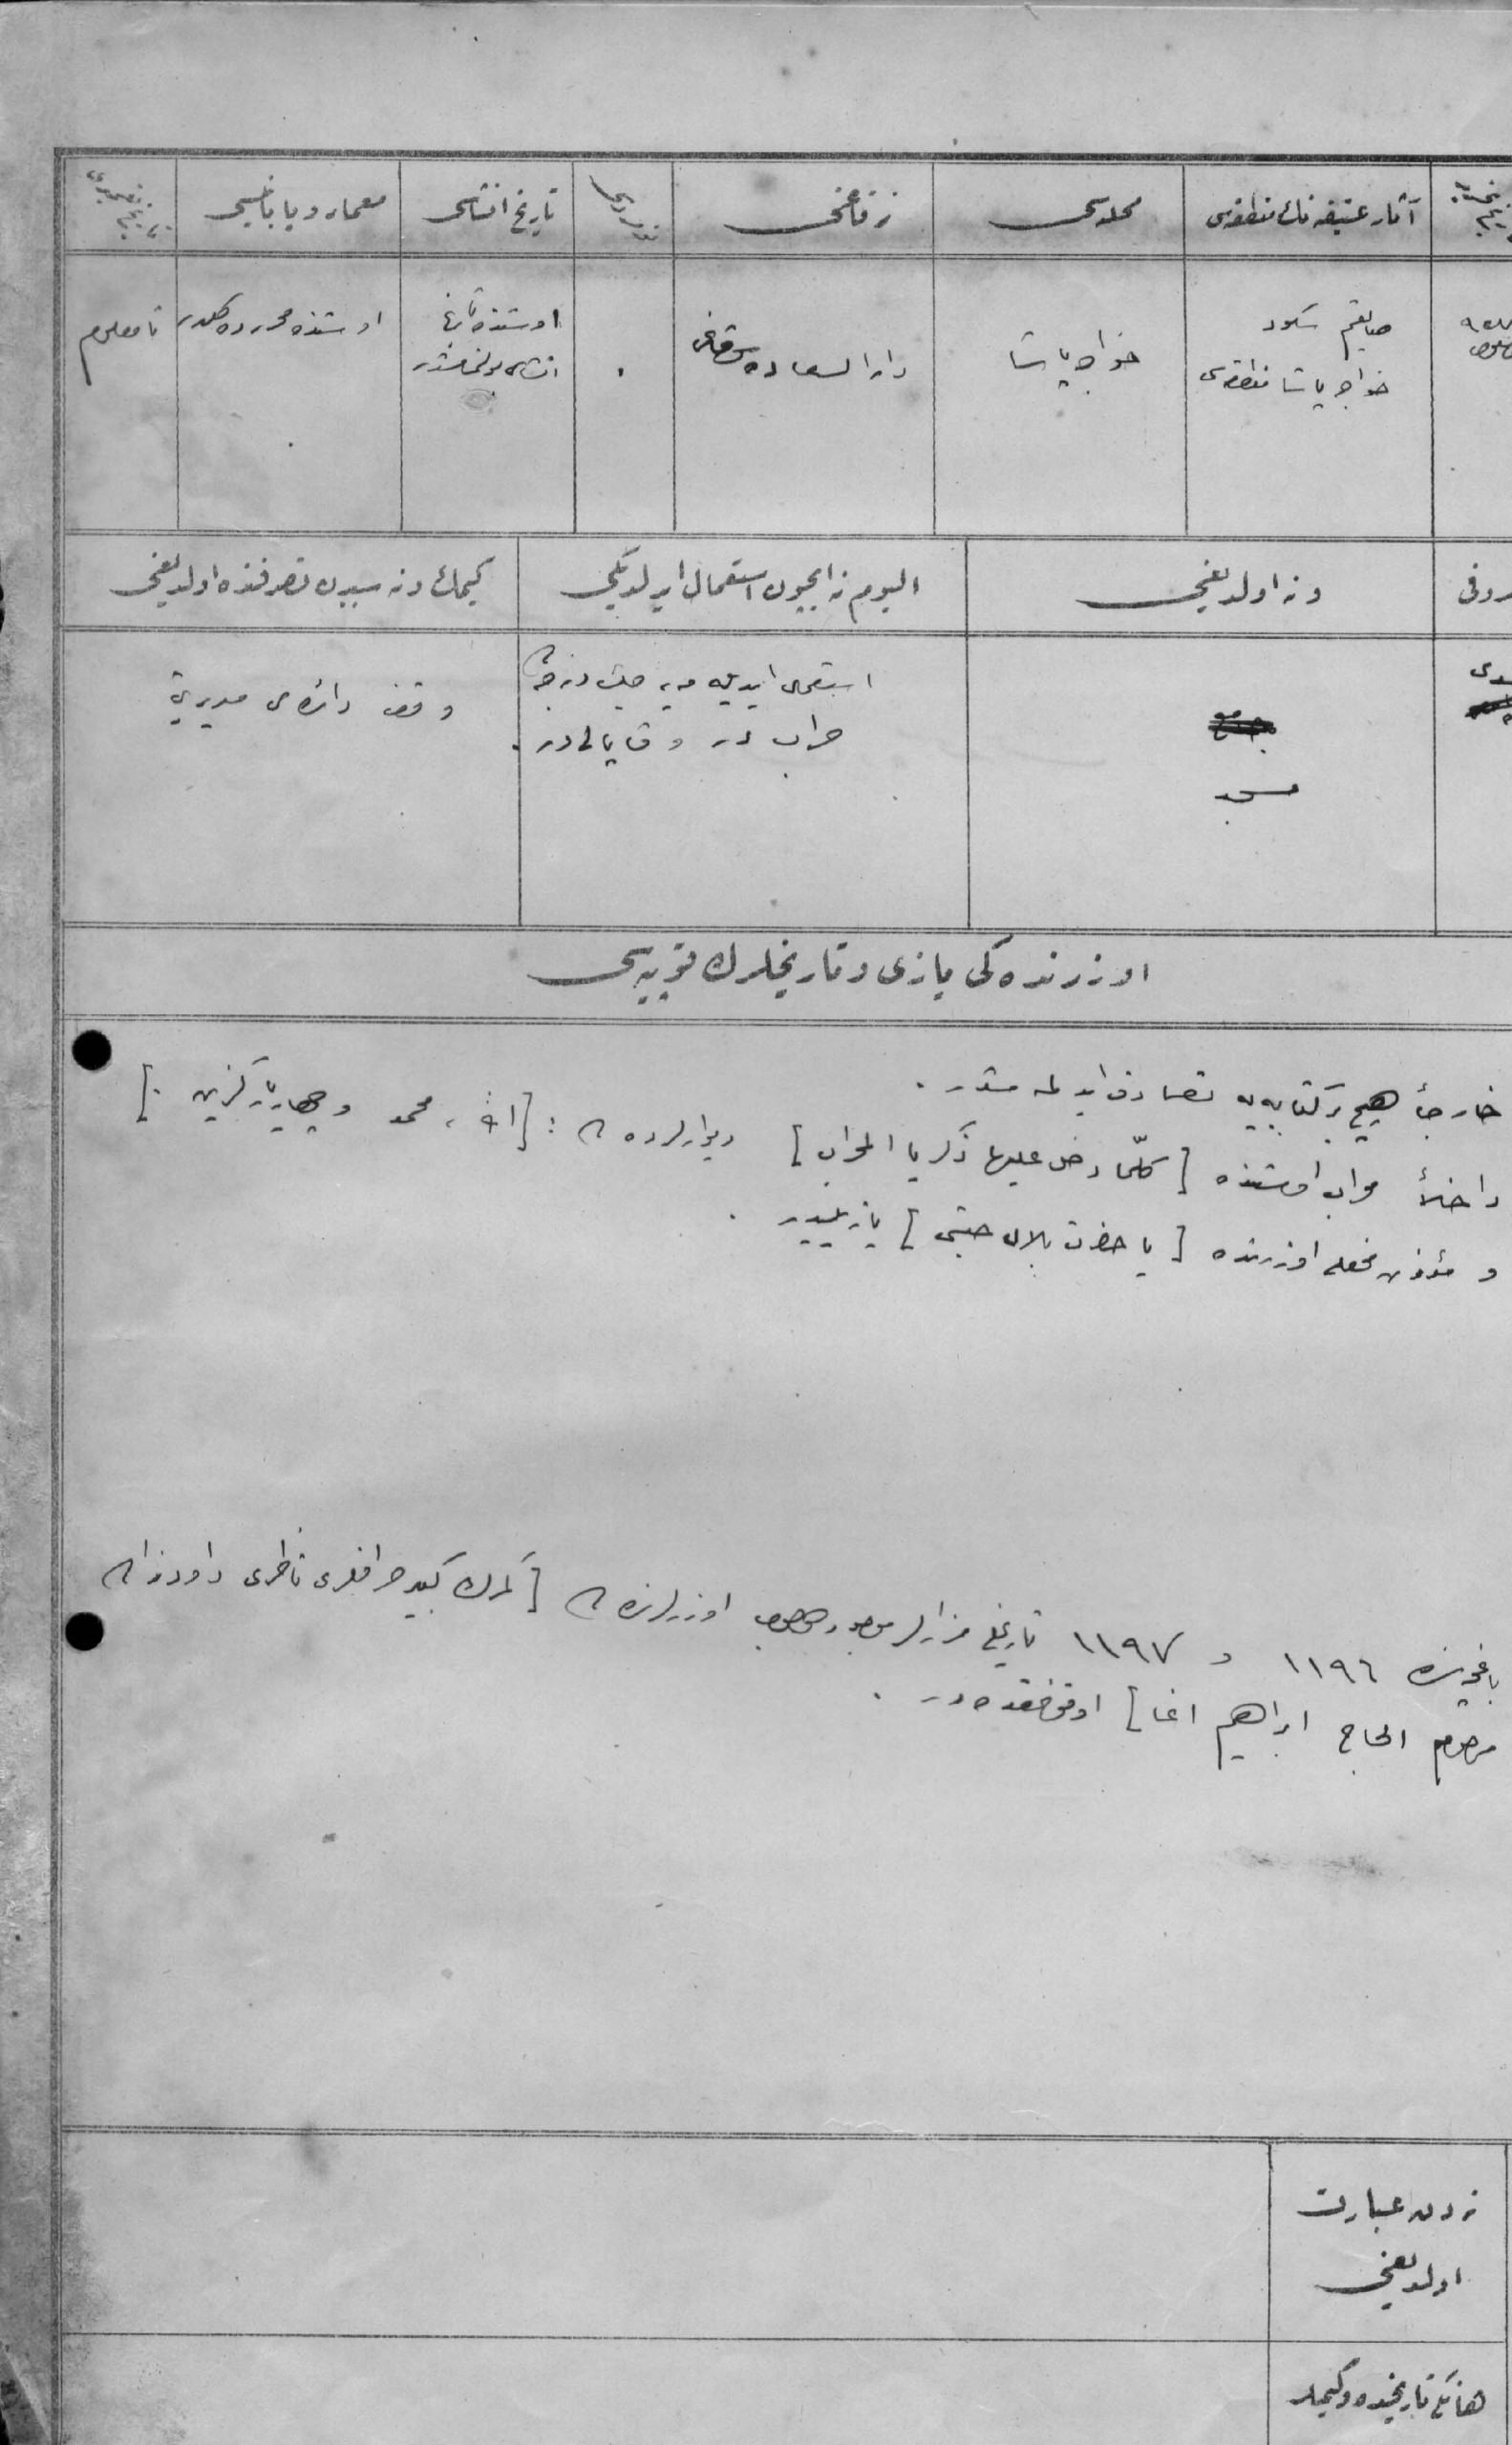 آثار عتیقه نك منطقه‌سی
محله‌سی
زقاغی
نومروسی
تاریخ انشاسی
معمار و یا بانیسی
تاریخ تعمیری
خواجه پاشا منطقه‌سی
خواجه پاشا
دار السعاده سوقاغی
.
اوستنده
اوستنده محرر دكلدر
نامعلوم
و نه اولدیغی
الیوم نه ایچون استعمال ایدلدیكی
كیمك و نه سببدن تصرفنده اولدیغی
جامع
مسجد
استعمال ایدیله میه جك درجه ده
خراب در و قاپالی در .
وقف دائره سی مدیریتی
اوزرنده كی یازی و تاریخلرك قوپیه سی
خارجاً هیچ بر كتابه یه تصادف ایدلمه مشدر .
داخلاً محراب اوستنده [ كلّما دخل علیها زكریا المحراب ] دیوارلرده : [ الله ، محمد و چهار یار گزین . ]
و مؤذن محفلی اوزرنده [ یا حضرت بلال حبشی ] یازیلیدر .
باغچه‌سنده ١١٩٦ و ١١٩٧ تاریخلی مزارلر موجود اوزرلرنده [ گمرك كبیر صرافلری ناظری داود زاده
مرحوم الحاج ابراهیم اغا ] اوقونمقده در .
نه دن عبارت
اولدیغی
هانكی تاریخده و كیملر